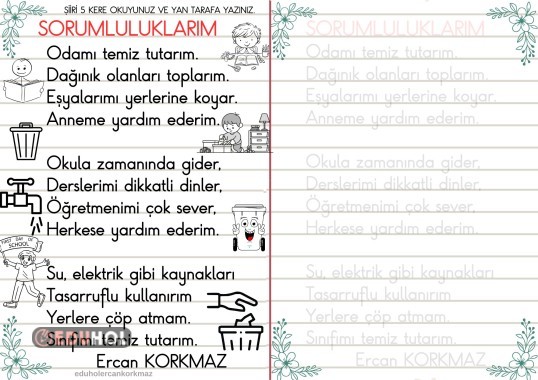 ŞİİRİ 5 KERE OKUYUNUZ VE YAN TARAFA YAZINIZ.
SORUMLULUKLARIM
Odamı temiz tutarım.
Dağınık olanları toplarım.
Eşyalarımı yerlerine koyar.
Anneme yardım ederim.
Okula zamanında gider,
Derslerimi dikkatli dinler,
Öğretmenimi çok sever,
Herkese yardım ederim.
FIRST DAY OF
SCHOOL
Su, elektrik gibi kaynakları
Tasarruflu kullanırım
Yerlere çöp atmam.
EDUHOL
Sınıfımı temiz tutarım.
Ercan KORKMAZ
eduholercankorkmaz
SORUMLULUKLARIM
Odamı temiz tutarım.
Dağınık olanları toplarım.
Eşyalarımı yerlerine koyar,
Anneme yardım ederim.
Okula zamanında gider,
Derslerimi dikkatli dinler,
Öğretmenimi çok sever,
Herkese yardım ederim.
Su, elektrik gibi kaynakları
Tasarruflu kullanırım
Yerlere çöp atmam.
Sınıfımı temiz tutarım.
Ercan KORKMAZ